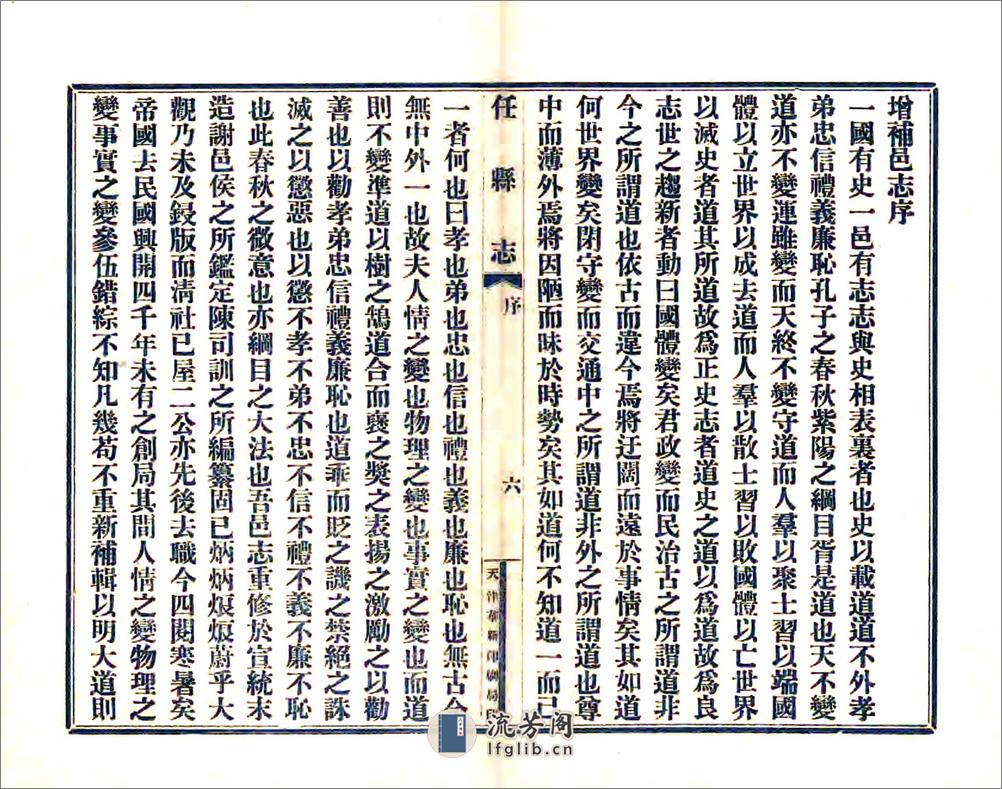 增補邑志序
一國有史一邑有志志與史相表裏者也史以載道道不外孝
弟忠信禮義廉恥孔子之春秋紫陽之綱目胥是道也天不變
道亦不變連雖變而天終不變守道而人羣以聚士習以端國
體以立世界以成去道而人羣以散士習以敗國體以亡世界
以滅史者道其所道故爲正史志者道史之道以爲道故爲良
志世之趨新者動曰國體變矣君政變而民治古之所謂道非
今之所謂道也依古而違今焉將迂闊而遠於事情矣其如道
何世界變矣閉守變而交通中之所謂道非外之所謂道也尊
中而薄外焉將因陋而昧於時勢矣其如道何不知道一而已
任縣志
序
六
天津華新印刷局
一者何也曰孝也弟也忠也信也禮也義也廉也恥也無古今
無中外一也故夫人情之變也物理之變也事實之變也而道
則不變準道以樹之鵠道合而襃之獎之表揚之激勵之以勸
善也以勸孝弟忠信禮義廉恥也道乖而貶之譏之禁絕之誅
滅之以懲惡也以懲不孝不弟不忠不信不禮不義不廉不恥
也此春秋之微意也亦綱目之大法也吾邑志重修於宣統末
造謝邑侯之所鑑定陳司訓之所編纂固已炳炳烺烺蔚乎大
觀乃未及鋟版而淸社已屋二公亦先後去職今四閱寒暑矣
帝國去民國興開四千年未有之創局其間人情之變物理之
變事實之變參伍錯綜不知凡幾苟不重新補輯以明大道則
流芳阁
lfglib.cn